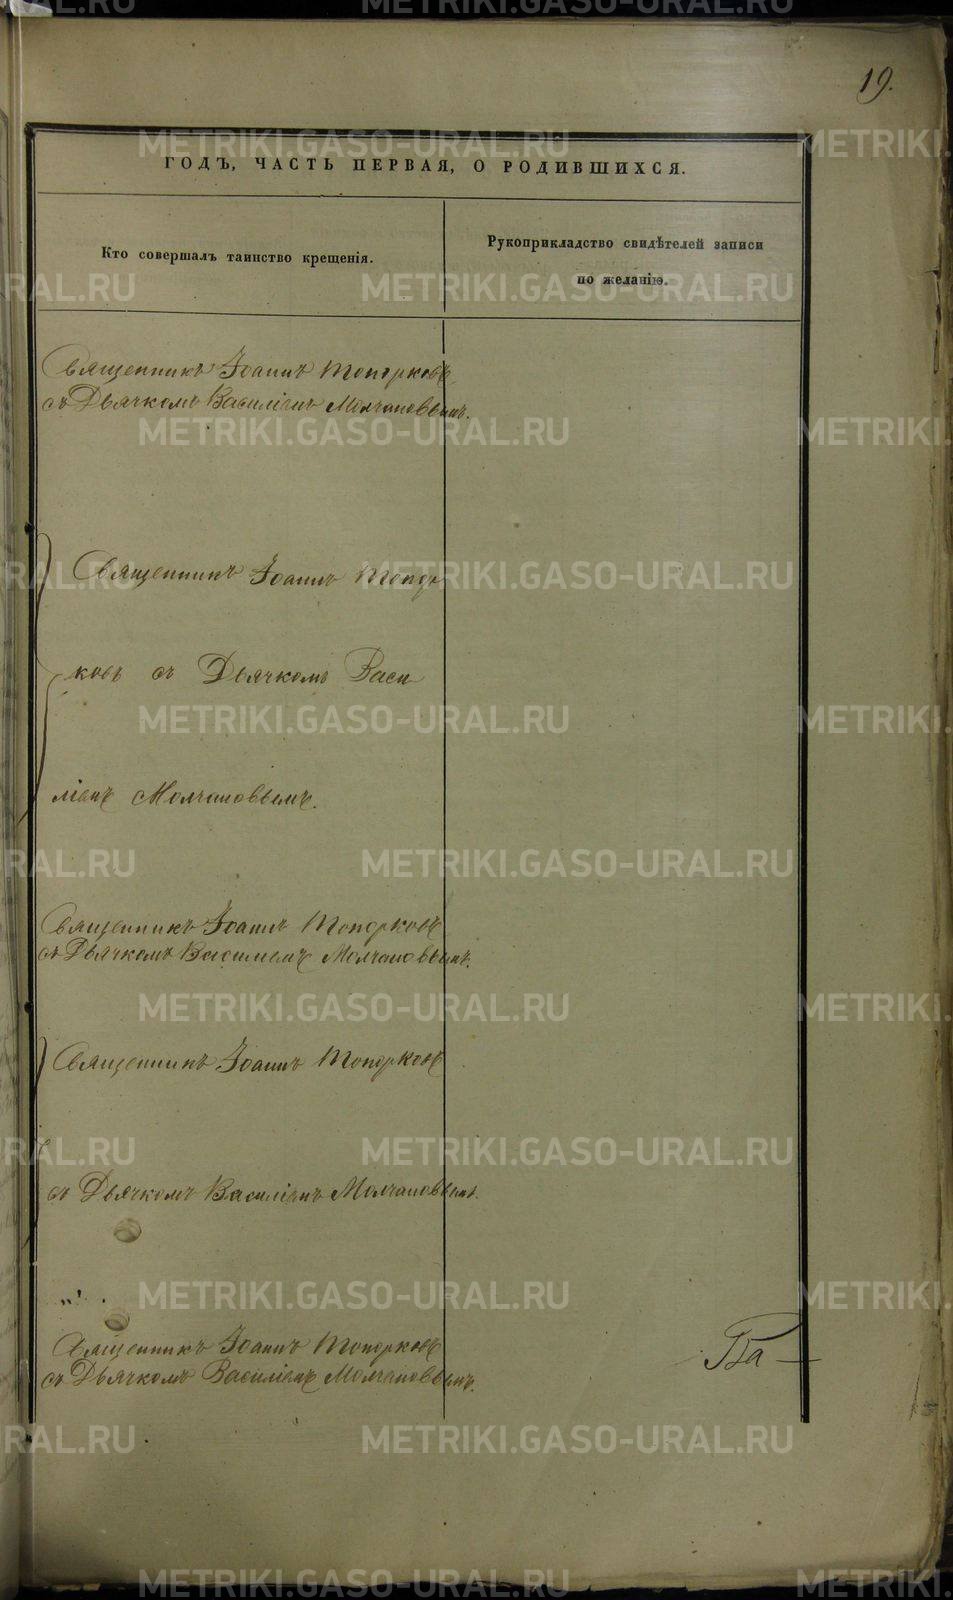 19.
ГОДЪ, ЧАСТЬ ПЕРВАЯ, О РОДИВШИХСЯ.
Кто совершалъ таинство крещенія.
Рукоприкладство свидѣтелей записи
по желанію.
Священникъ Іоаннъ Топорковъ
съ Дьячкомъ Василіемъ Молчановымъ.
Священникъ Іоаннъ Топор
ковъ съ Дьячкомъ Васи
ліемъ Молчановымъ.
Священникъ Іоаннъ Топорковъ
съ Дьячкомъ Василіемъ Молчановымъ.
Священникъ Іоаннъ Топорковъ
съ Дьячкомъ Василіемъ Молчановымъ.
Священникъ Іоаннъ Топорковъ
съ Дьячкомъ Василіемъ Молчановымъ.
Ба
METRIKI.GASO-URAL.RU